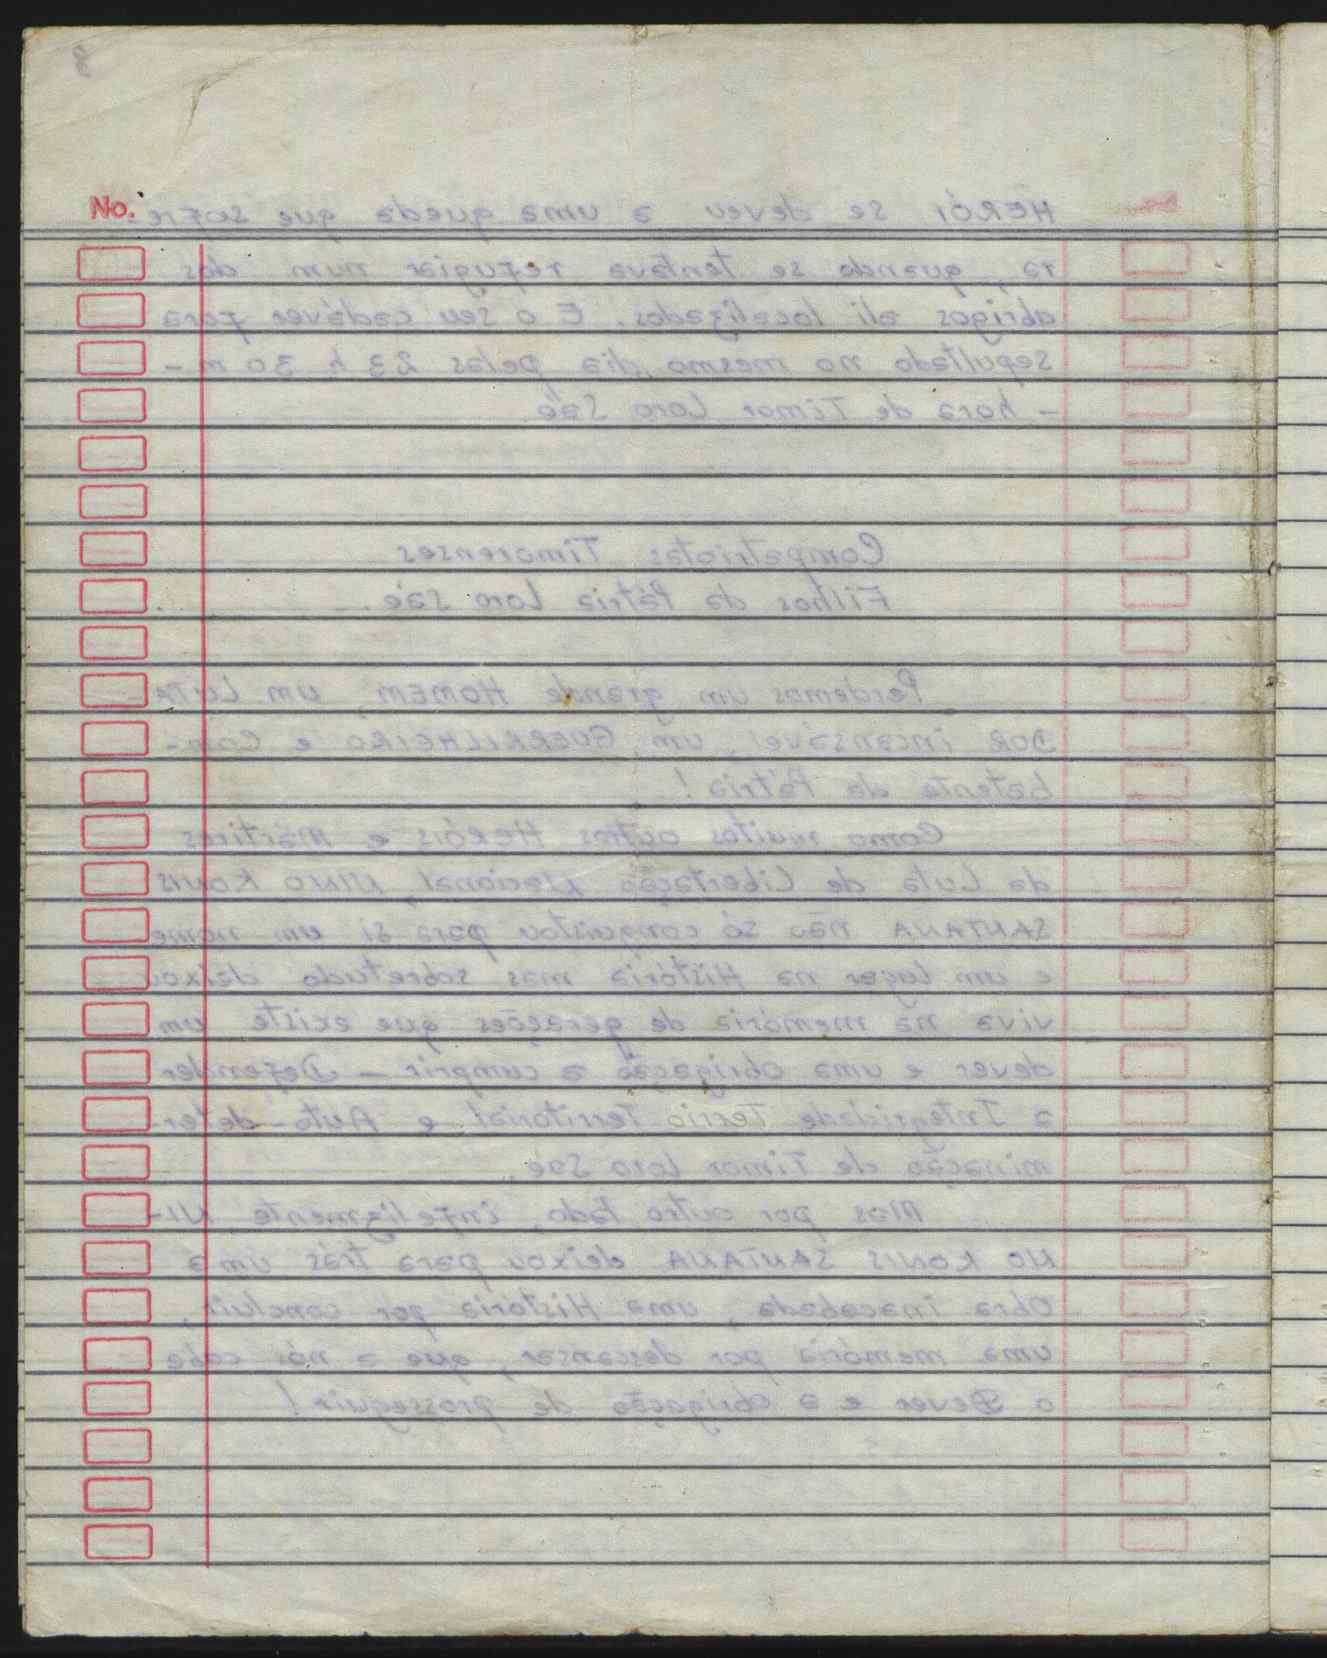 8
No.
HERÓI se deveu a uma queda que sofre-
ra, quando se tentava refugiar num dos
abrigos ali localizados. E o seu cadáver fora
sepultado no mesmo dia pelas 23 h 30 m -
- hora de Timor Loro Saé
Compatriotas Timorenses
Filhos da Pátria Loro Saé.
Perdemos um grande HOMEM, um LUTA
DOR incansável, um GUERRILHEIRO e Com-
batente da Pátria!
Como muitos outros Heróis e mártires
da Luta de Libertação Nacional, NINO KONIS
SANTANA não só conquistou para si um nome
e um lugar na História mas sobretudo deixou
viva na memória de gerações que existe um
dever e uma obrigação a cumprir - Defender
a Integridade Territorial e Auto-deter-
minação de Timor Loro Saé.
Mas por outro lado, infelizmente, NI-
NO KONIS SANTANA deixou para trás uma
Obra inacabada, uma História por concluir,
uma memória por descansar, que a nós cabe
o Dever e a obrigação de prosseguir!